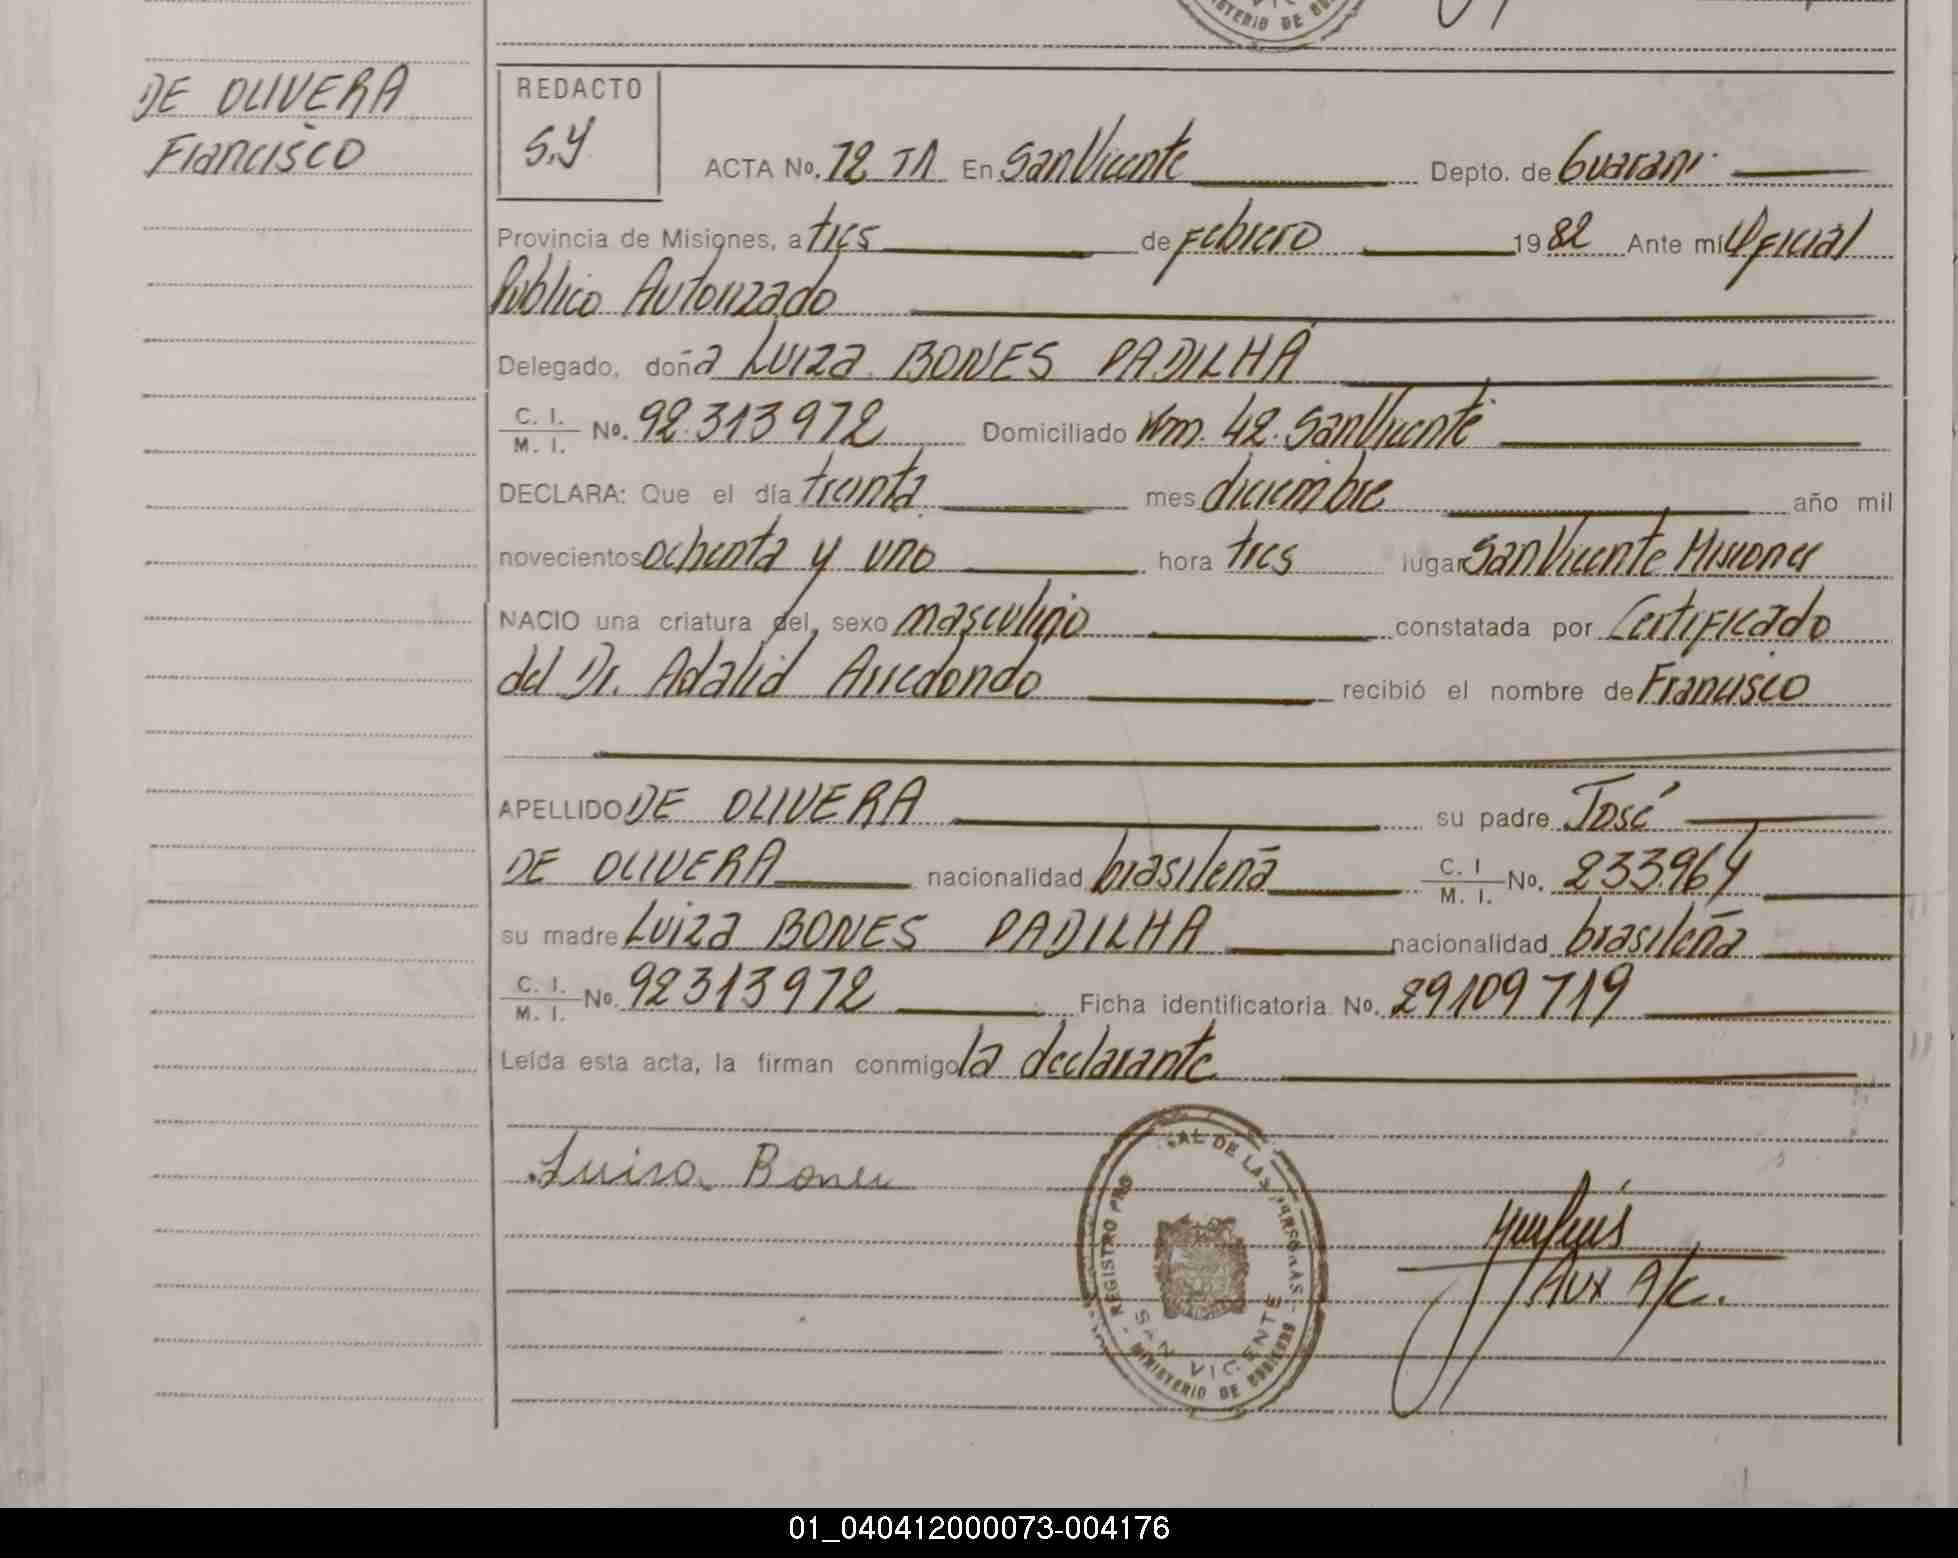 DE OLIVERA
Francisco
REDACTO
S.Y
ACTA No. 72 TA En San Vicente Depto. de Guaraní
Provincia de Misiones, a tres de Febrero 1982 Ante mí Oficial
Público Autorizado
Delegado, doña Luiza BONES PADILHA
C. I. / M. I. No. 92.313972 Domiciliado Km. 42. San Vicente
DECLARA: Que el día treinta mes diciembre año mil
novecientos ochenta y uno hora tres lugar San Vicente Misiones
NACIO una criatura del sexo masculino constatada por Certificado
del Dr. Adalid Arredondo recibió el nombre de Francisco
APELLIDO DE OLIVERA su padre José
DE OLIVERA nacionalidad brasileña C. I / M. I. No. 233.964
su madre Luiza BONES PADILHA nacionalidad brasileña
C. I. / M. I. No. 92313972 Ficha identificatoria No. 29109719
Leída esta acta, la firman conmigo la declarante
Luiza Bones
REGISTRO PRO AL DE LAS PERSONAS
SAN VICENTE
MINISTERIO DE GOBIERNO
Aux A/C.
01_040412000073-004176